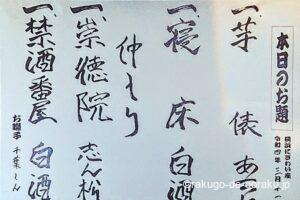 本日のお題
横浜にぎわい座
令和四年三月
一、芋俵 あ
一、寝床 白酒
仲入り
一、崇徳院 志ん松
一、禁酒番屋 白酒
お囃子 千葉しん
@rakugo-de-goraku.jp